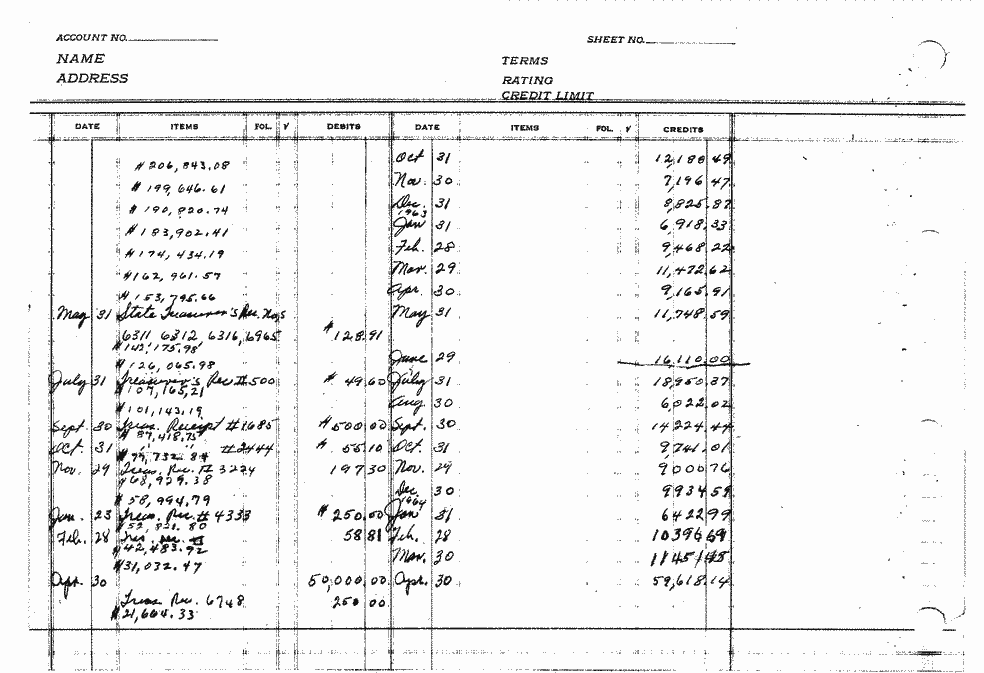 ACCOUNT NO. SHEET NO.
NAME TERMS
ADDRESS RATING
CREDIT LIMIT
DATE ITEMS FOL. √ DEBITS DATE ITEMS FOL. √ CREDITS
Oct 31 12,188 49
$206,843.08
Nov. 30 7,196 47
$199,646.61
Dec. 31 8,825.87
$190,820.74
1963
Jan 31 6,918.33
$183,902.41
Feb. 28 9468 22
$174,434.19
Mar. 29 11,472.62
$162,961.57
Apr. 30 9,165.91
$153,795.66
May 31 State Treasurer's Rec. Nos May 31 11,748.59
6311 6312 6316, 6965 $128.91
$142,175.98
June 29 16,110.00
$126,065.98
July 31 Treasurer's Rec #500 $49.60 July 31 18,950.37
$107,165.21
Aug 30 6,022.02
$101,143.19
Sept. 30 Treas. Receipt #1685 $500.00 Sept. 30 14224.44
$87,418.75
Oct. 31 " " #2444 $55.10 Oct. 31 9,741.01
$77,732.84
Nov. 29 Treas. Rec. # 3224 197 30 Nov. 29 9000 76
$68,929.38
Dec. 30 9934 59
$58,994.79
1964
Jan. 23 Treas. Rec. # 4333 $250.00 Jan 31 6422 99
$52,821.80
Feb. 28 Tres. Rec. # 58 81 Feb. 28 10396 69
$42,483.92
Mar. 30 11451 45
$31,032.47
Apr. 30 50,000.00 Apr. 30 59,618.14
Treas Rec. 6748 250 00
$21,664.33